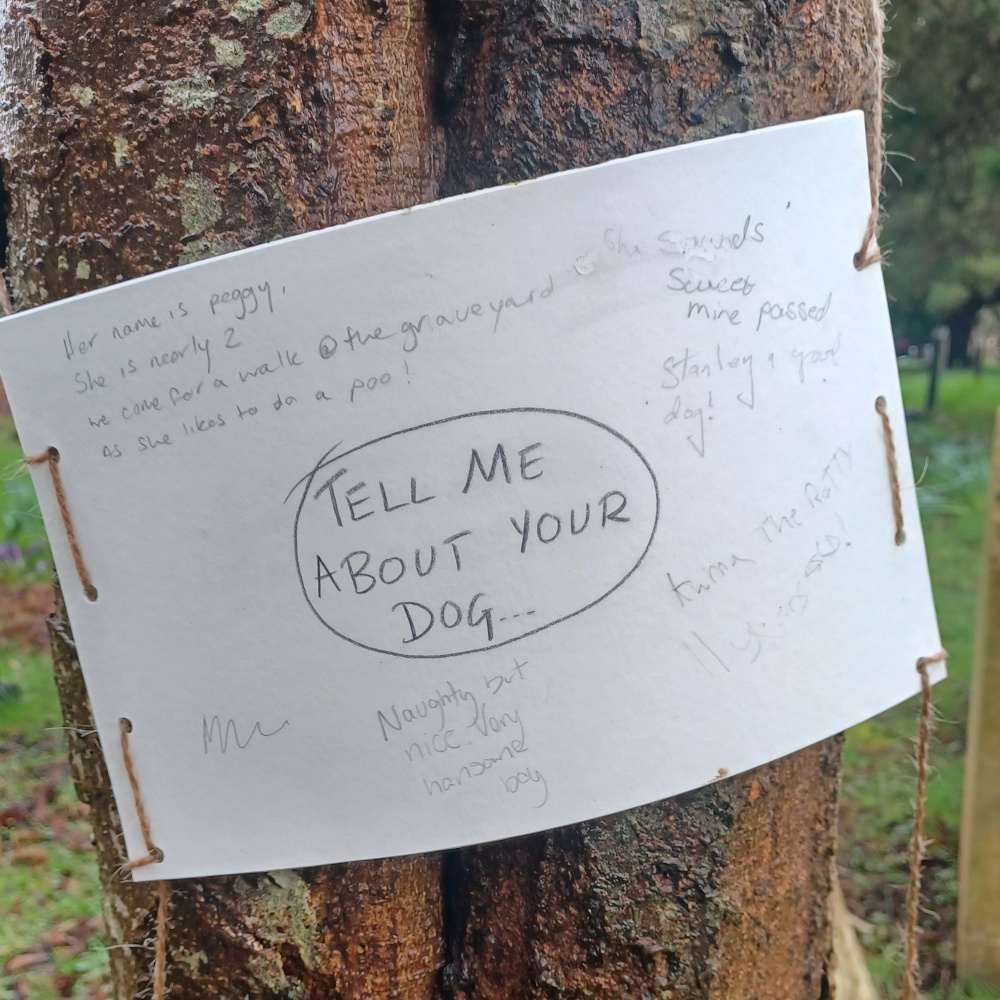 Her name is peggy,
She is nearly 2
we come for a walk @ the graveyard
as she likes to do a poo!
She Sounds
Sweet
mine passed
Stanley a good
dog!
TELL ME
ABOUT YOUR
DOG...
The Rotty
11 years old!
Naughty but
nice. Very
hansome
boy